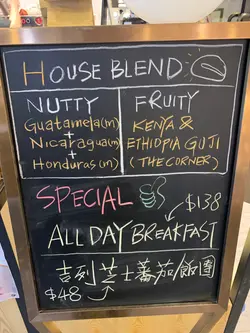 HOUSE BLEND
NUTTY
Guatamela(m)
+
Nicaragua(m)
+
Honduras(m)
FRUITY
KENYA &
ETHIOPIA GUJI
(THE CORNER)
SPECIAL
$138
ALL DAY BREAKFAST
吉列芝士蕃茄飯團
$48